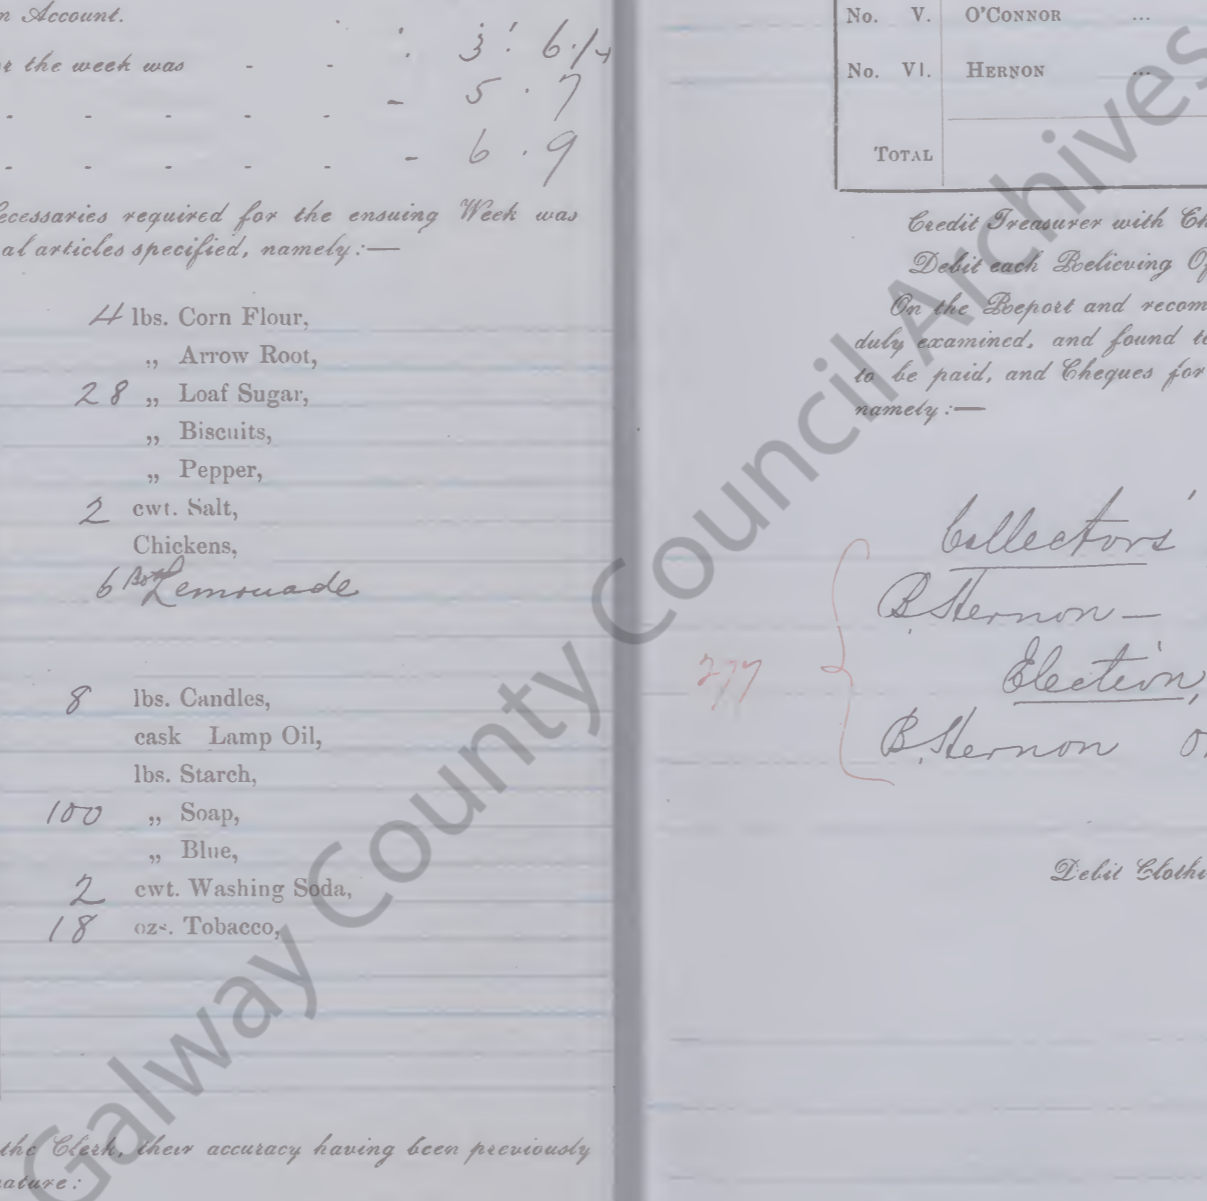 n Account.
3 : 6¼
r the week was - - 
- - - - - - 5 . 7
- - - - - - 6 . 9
ecessaries required for the ensuing Week was
al articles specified, namely :—
4 lbs. Corn Flour,
„ Arrow Root,
28 „ Loaf Sugar,
„ Biscuits,
„ Pepper,
2 cwt. Salt,
Chickens,
6 Bot Lemonade
8 lbs. Candles,
cask Lamp Oil,
lbs. Starch,
100 „ Soap,
„ Blue,
2 cwt. Washing Soda,
18 ozs. Tobacco,
the Clerk, their accuracy having been previously
nature :
No. V. O'Connor ...
No. VI. Hernon ...
Total
Credit Treasurer with Ch
Debit each Relieving Of
On the Report and recom
duly examined, and found to
to be paid, and Cheques for
namely :—
Collectors'
B. Hernon —
277
Election,
B. Hernon
Debit Clothi
Galway County Council Archives